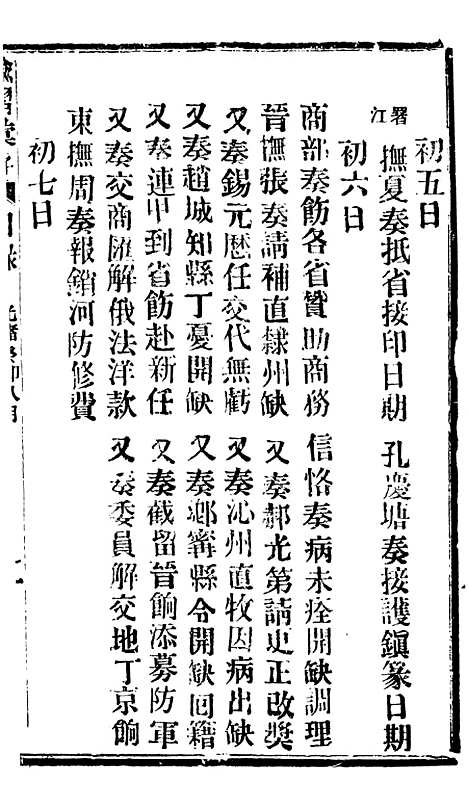 初五日
署江撫夏奏抵省接印日期　孔慶塘奏接護鎮篆日期
初六日
商部奏飭各省贊助商務　信恪奏病未痊開缺調理
晉撫張奏請補直隸州缺　又奏郝光第請更正改獎
又奏錫元歷任交代無虧　又奏沁州直牧因病出缺
又奏趙城知縣丁憂開缺　又奏鄉寧縣令開缺回籍
又奏連甲到省飭赴新任　又奏截留晉餉添募防軍
又奏交商匯解俄法洋款　又奏委員解交地丁京餉
東撫周奏報銷河防修費
初七日
目錄　光緒癸卯八月